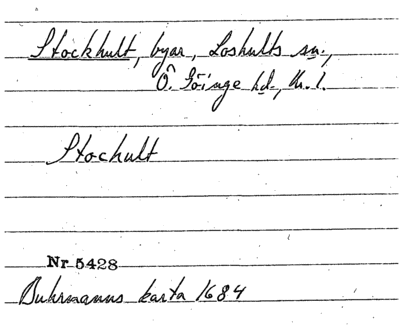 Stockhult, byar, Loshults sn.,
Ö. Göinge hd., Kr. l.
Stochult
Nr 5428
Buhrmanns karta 1684